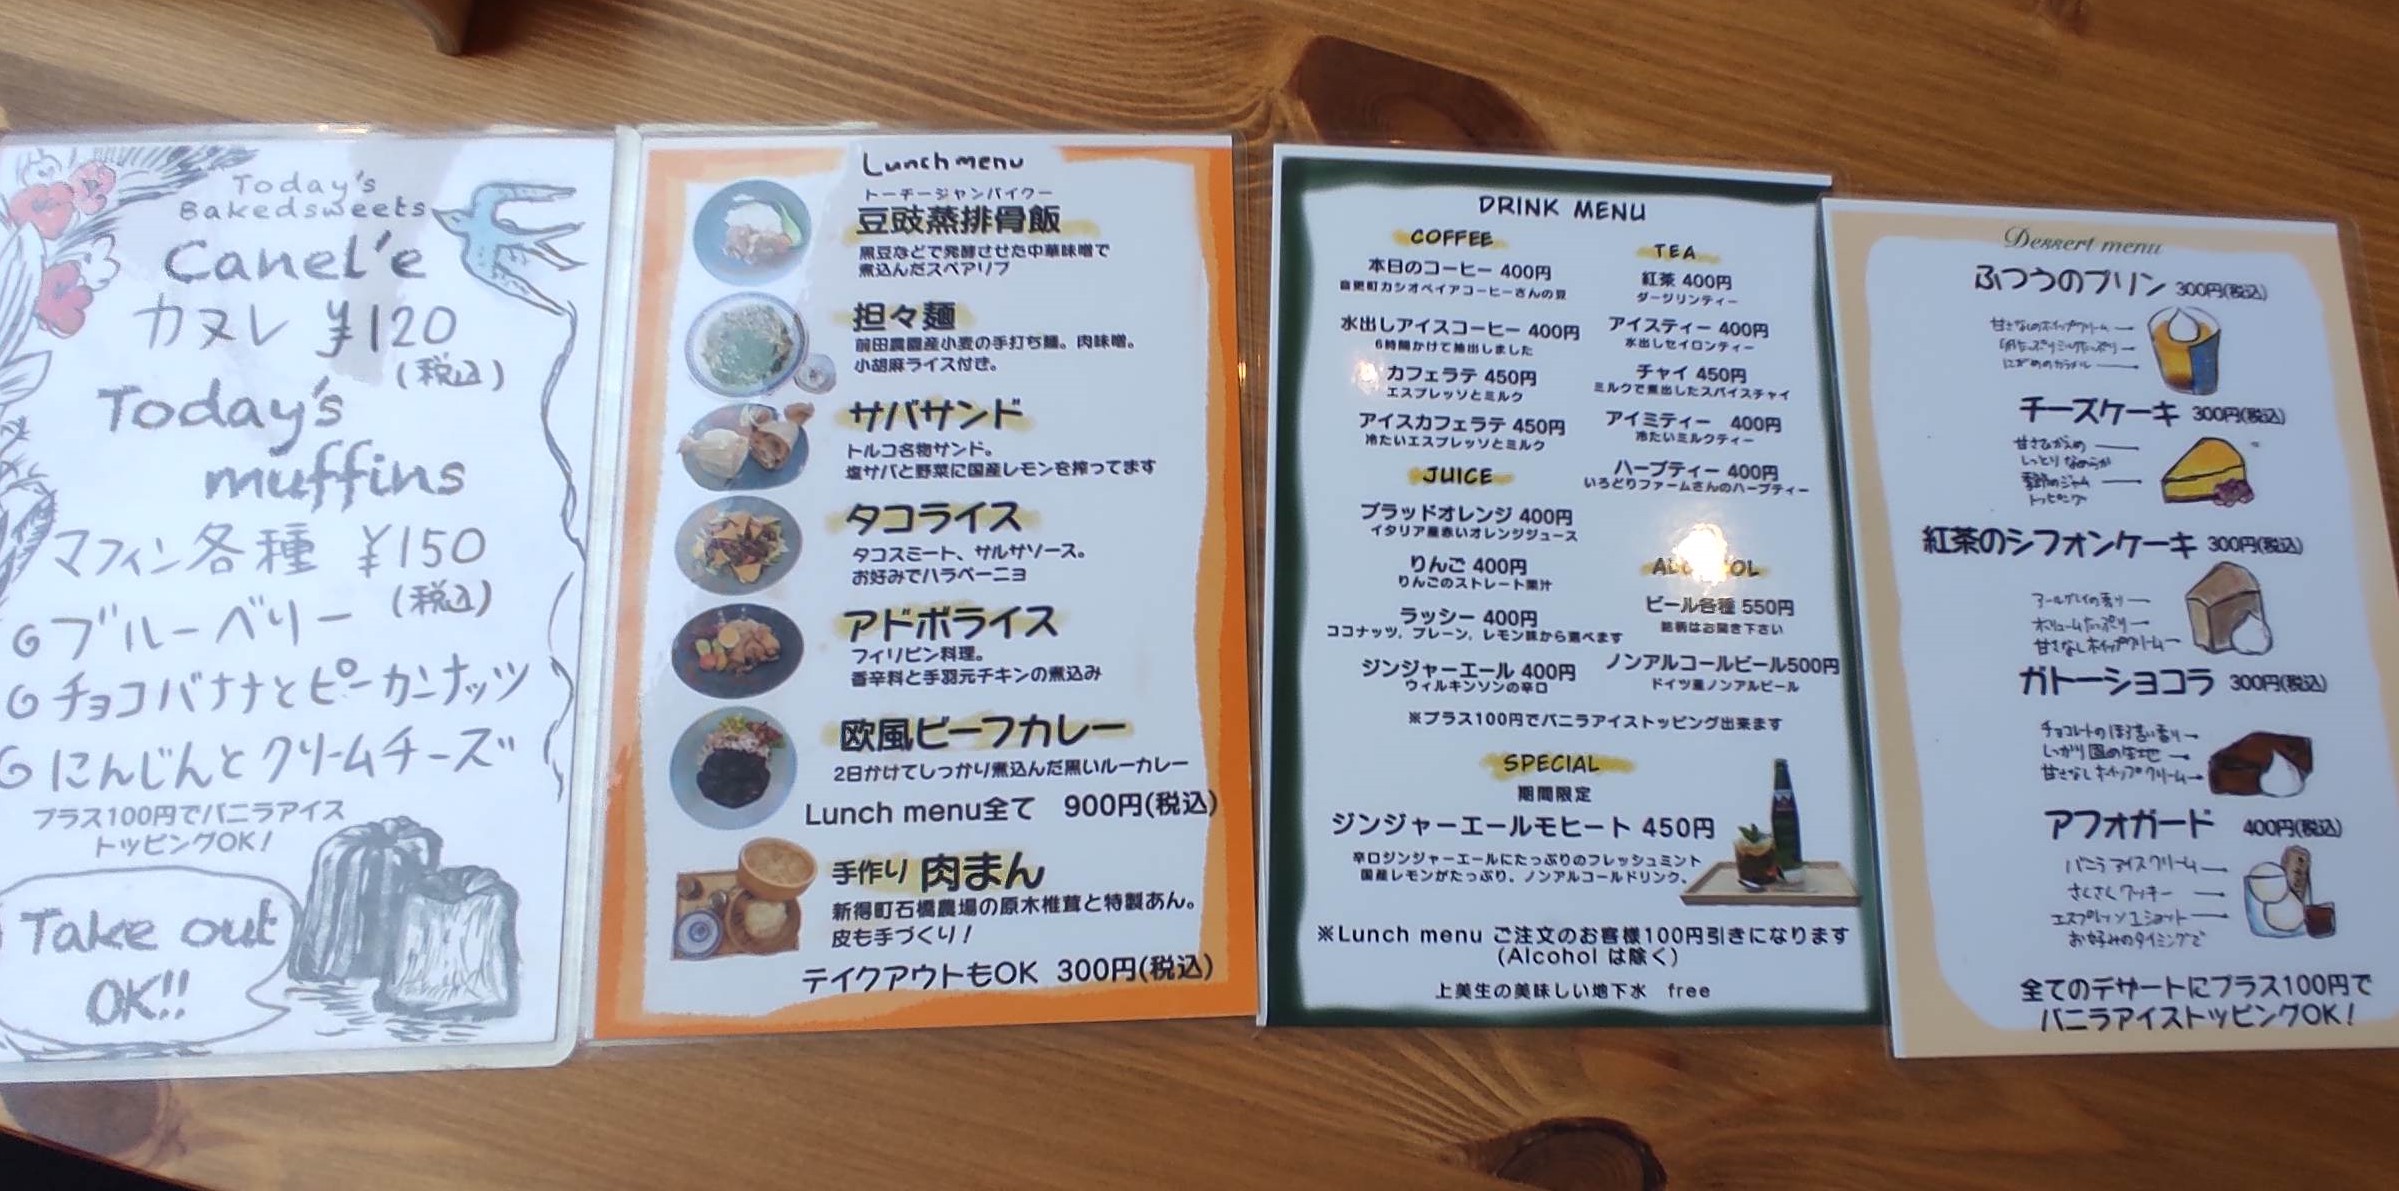 Today's
Bakedsweets
Canel'e
カヌレ ¥120
(税込)
Today's
muffins
マフィン各種 ¥150
(税込)
ブルーベリー
チョコバナナとピーカンナッツ
にんじんとクリームチーズ
プラス100円でバニラアイス
トッピングOK!
Take out
OK!!
Lunch menu
トーチージャンパイクー
豆豉蒸排骨飯
黒豆などで発酵させた中華味噌で
煮込んだスペアリブ
担々麺
前田農園産小麦の手打ち麺。肉味噌。
小胡麻ライス付き。
サバサンド
トルコ名物サンド。
塩サバと野菜に国産レモンを搾ってます
タコライス
タコスミート、サルサソース。
お好みでハラペーニョ
アドボライス
フィリピン料理。
香辛料と手羽元チキンの煮込み
欧風ビーフカレー
2日かけてしっかり煮込んだ黒いルーカレー
Lunch menu全て 900円(税込)
手作り 肉まん
新得町石橋農場の原木椎茸と特製あん。
皮も手づくり!
テイクアウトもOK 300円(税込)
DRINK MENU
COFFEE
本日のコーヒー 400円
音更町カシオペイアコーヒーさんの豆
水出しアイスコーヒー 400円
6時間かけて抽出しました
カフェラテ 450円
エスプレッソとミルク
アイスカフェラテ 450円
冷たいエスプレッソとミルク
JUICE
ブラッドオレンジ 400円
イタリア産赤いオレンジジュース
りんご 400円
りんごのストレート果汁
ラッシー 400円
ココナッツ, プレーン, レモン味から選べます
ジンジャーエール 400円
ウィルキンソンの辛口
TEA
紅茶 400円
ダージリンティー
アイスティー 400円
水出しセイロンティー
チャイ 450円
ミルクで煮出したスパイスチャイ
アイミティー 400円
冷たいミルクティー
ハーブティー 400円
いろどりファームさんのハーブティー
ビール各種 550円
銘柄はお聞き下さい
ノンアルコールビール500円
ドイツ産ノンアルビール
※プラス100円でバニラアイストッピング出来ます
SPECIAL
期間限定
ジンジャーエールモヒート 450円
辛口ジンジャーエールにたっぷりのフレッシュミント
国産レモンがたっぷり。ノンアルコールドリンク。
※Lunch menu ご注文のお客様100円引きになります
(Alcohol は除く)
上美生の美味しい地下水 free
Dessert menu
ふつうのプリン 300円(税込)
甘さなしのホイップクリーム
にがめのカラメル
チーズケーキ 300円(税込)
甘さひかえめ
しっとり なめらか
季節のジャム
トッピング
紅茶のシフォンケーキ 300円(税込)
アールグレイの香り
ボリュームたっぷり
甘さなしホイップクリーム
ガトーショコラ 300円(税込)
チョコレートのほろ苦い香り
しっかり固めの生地
甘さなしホイップクリーム
アフォガード 400円(税込)
バニラアイスクリーム
さくさくクッキー
エスプレッソ1ショット
お好みのタイミングで
全てのデザートにプラス100円で
バニラアイストッピングOK!